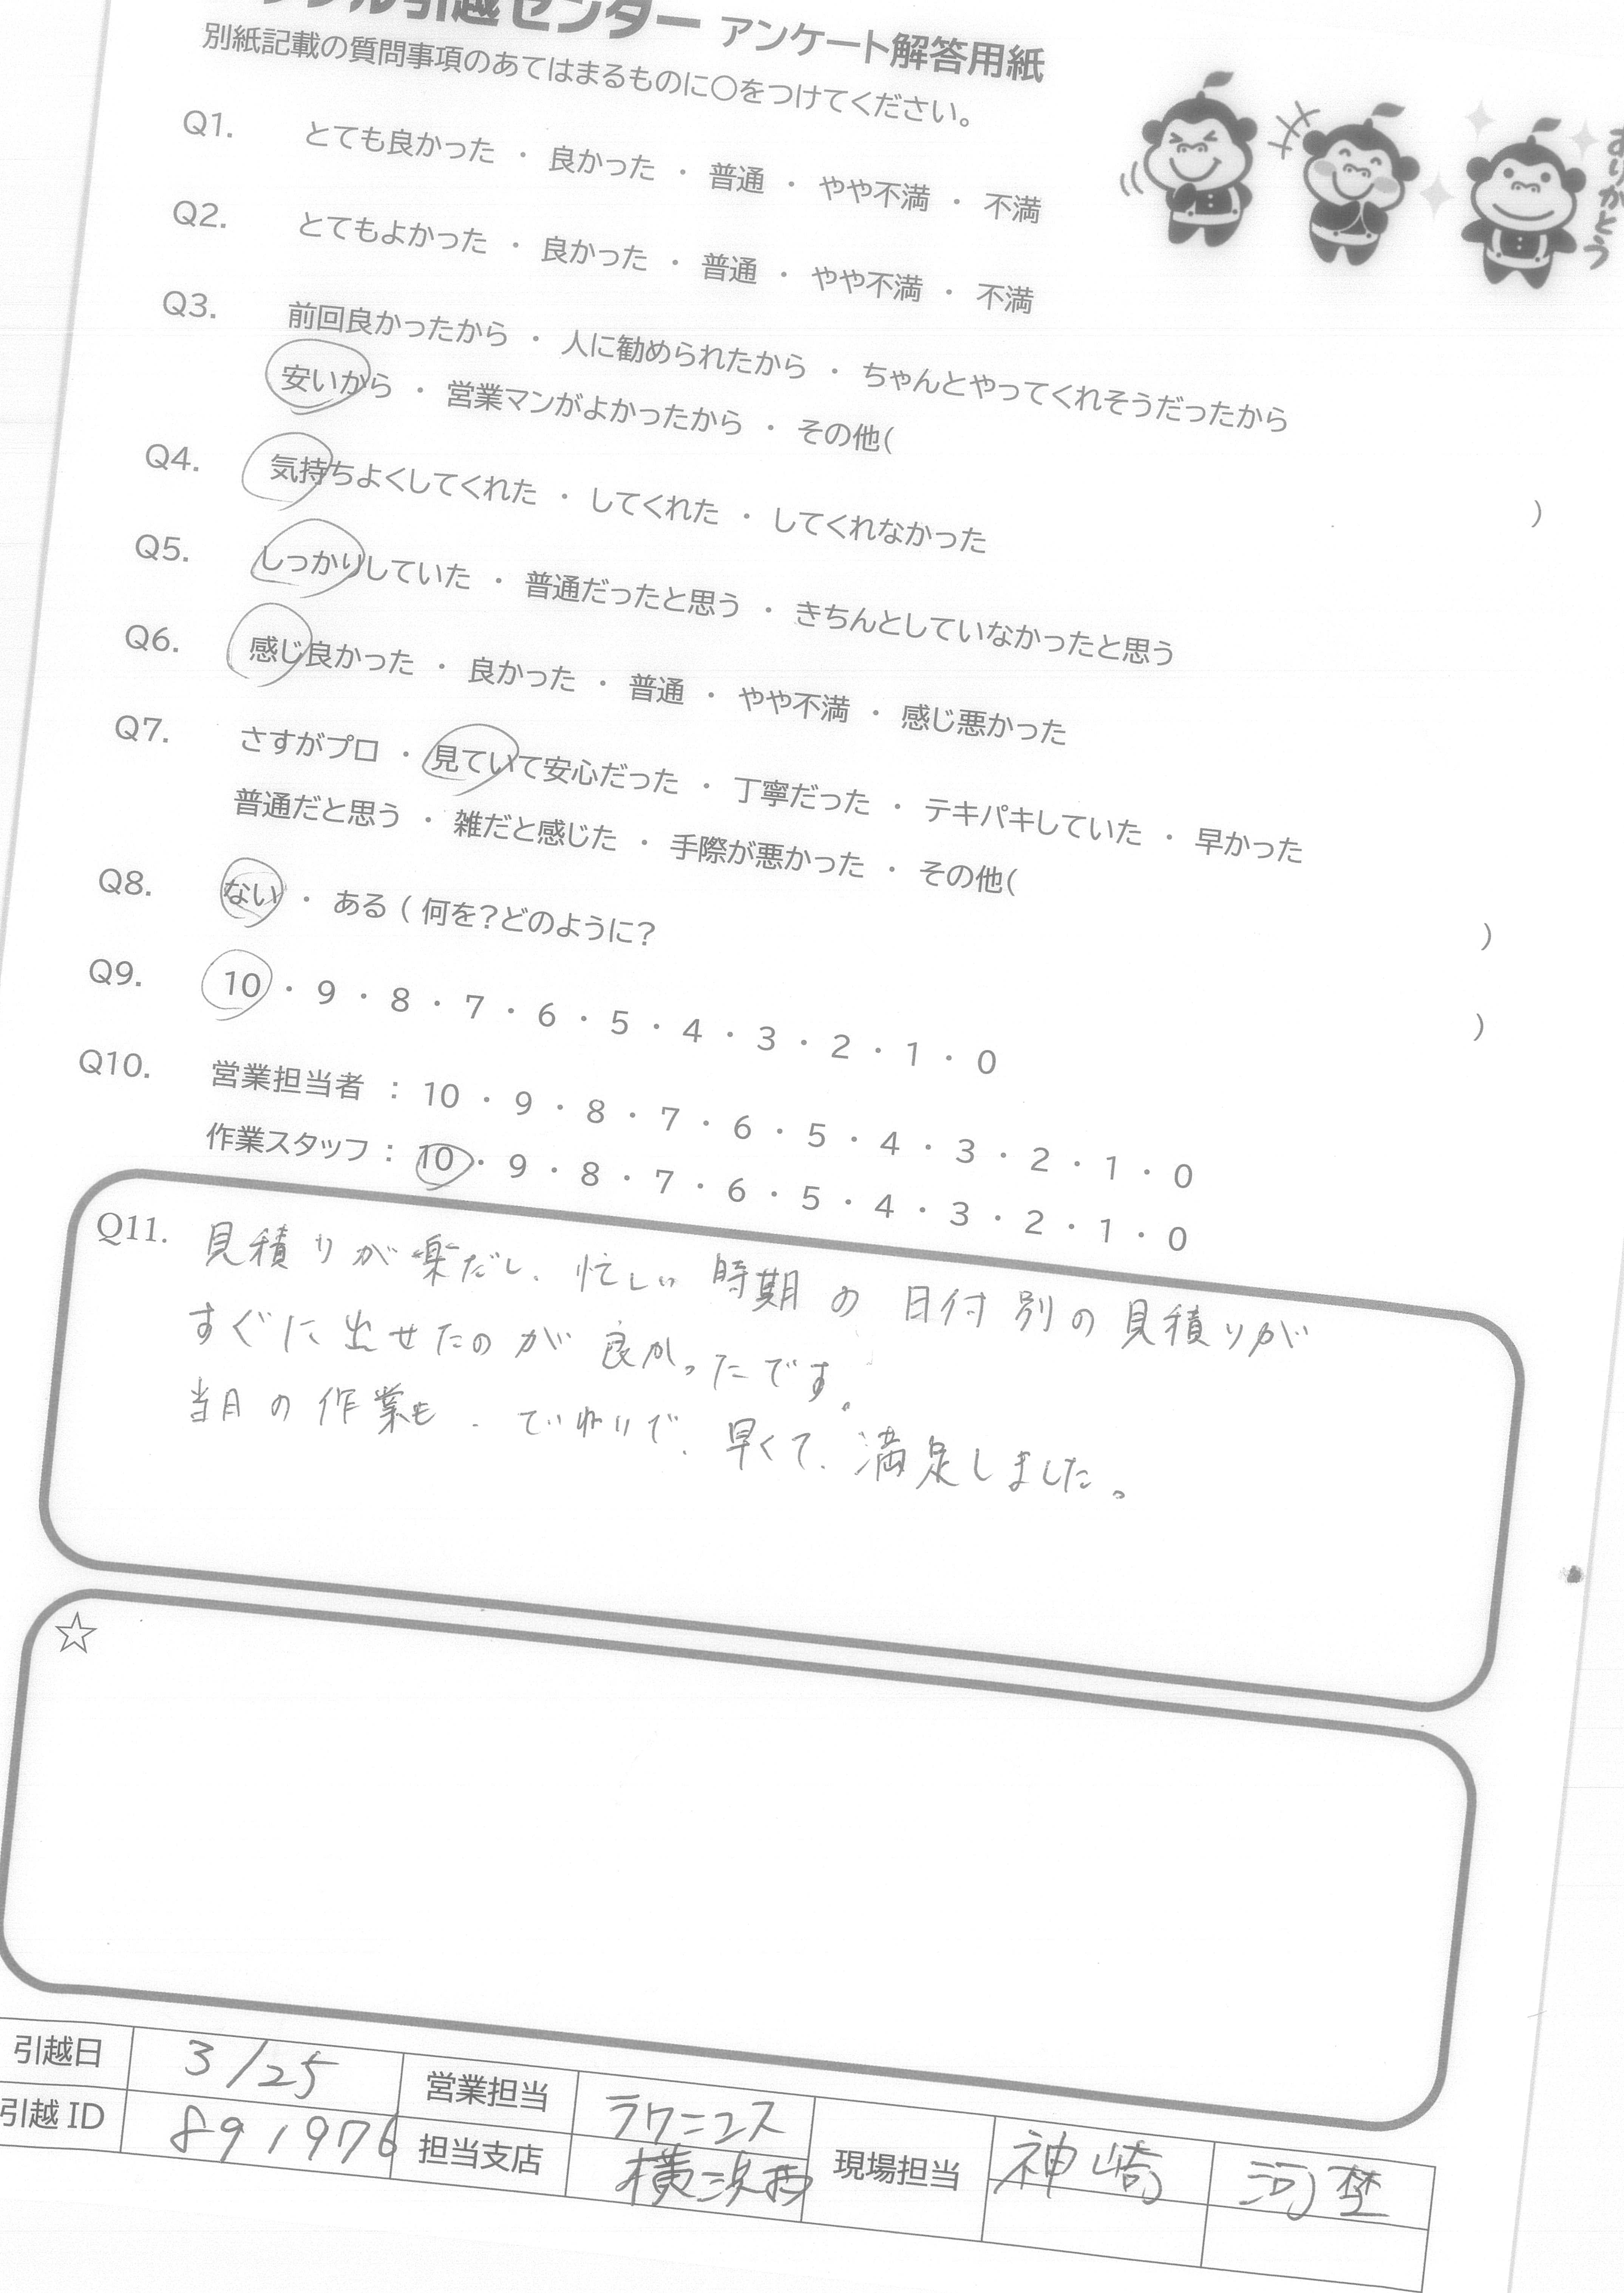 引越センター アンケート解答用紙
別紙記載の質問事項のあてはまるものに○をつけてください。
ありがとう
Q1. とても良かった ・ 良かった ・ 普通 ・ やや不満 ・ 不満
Q2. とてもよかった ・ 良かった ・ 普通 ・ やや不満 ・ 不満
Q3. 前回良かったから ・ 人に勧められたから ・ ちゃんとやってくれそうだったから
安いから ・ 営業マンがよかったから ・ その他( )
Q4. 気持ちよくしてくれた ・ してくれた ・ してくれなかった
Q5. しっかりしていた ・ 普通だったと思う ・ きちんとしていなかったと思う
Q6. 感じ良かった ・ 良かった ・ 普通 ・ やや不満 ・ 感じ悪かった
Q7. さすがプロ ・ 見ていて安心だった ・ 丁寧だった ・ テキパキしていた ・ 早かった
普通だと思う ・ 雑だと感じた ・ 手際が悪かった ・ その他( )
Q8. ない ・ ある ( 何を?どのように? )
Q9. 10 ・ 9 ・ 8 ・ 7 ・ 6 ・ 5 ・ 4 ・ 3 ・ 2 ・ 1 ・ 0
Q10. 営業担当者 : 10 ・ 9 ・ 8 ・ 7 ・ 6 ・ 5 ・ 4 ・ 3 ・ 2 ・ 1 ・ 0
作業スタッフ : 10 ・ 9 ・ 8 ・ 7 ・ 6 ・ 5 ・ 4 ・ 3 ・ 2 ・ 1 ・ 0
Q11. 見積りが楽だし、忙しい時期の日付別の見積りが
すぐに出せたのが良かったです。
当月の作業も、ていねいで、早くて、満足しました。
☆
引越日 3/25 営業担当 ラクニコス 現場担当 神崎 河埜
引越ID 891976 担当支店 横浜西